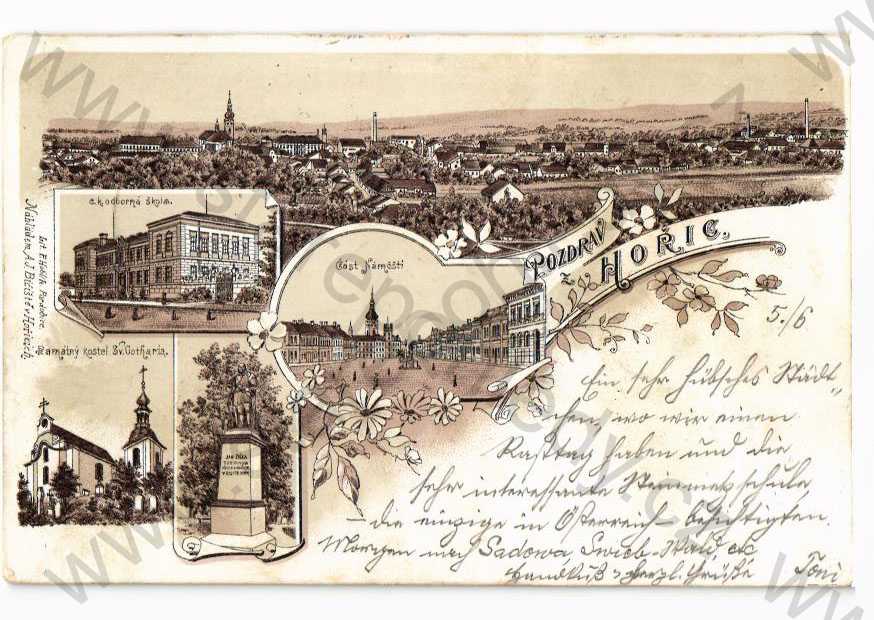 c.k. odborná škola.
Část Náměstí
POZDRAV
z HOŘIC.
Památný kostel Sv. Gotharda.
Nákladem A. J. Bőriště v Hořicích
JAN ŽIŽKA
5./6
Ein sehr hübsches Städt„
chen, wo wir einen
Rasttag haben und die
sehr interessante Steinmetzschule
– die einzige in Österreich – besichtigten.
Morgen nach Sadowa, Swieb-Wald, etc
Handkuß & herzl. Grüße Toni